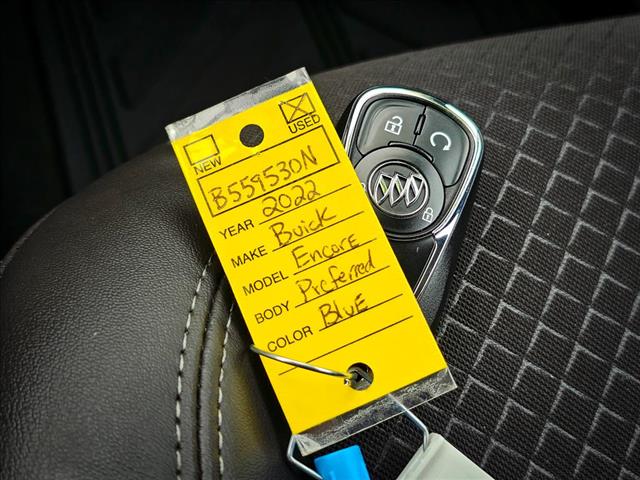 NEW USED
B559530N
YEAR 2022
MAKE Buick
MODEL Encore
BODY Preferred
COLOR Blue